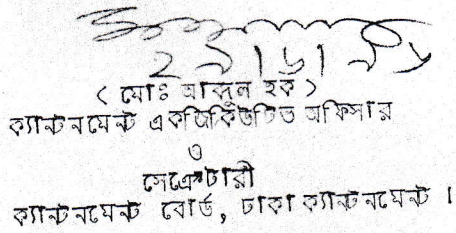 ২৯/৬/৯৮
( মোঃ আব্দুল হক )
ক্যান্টনমেন্ট একজিকিউটিভ অফিসার
ও
সেক্রেটারী
ক্যান্টনমেন্ট বোর্ড, ঢাকা ক্যান্টনমেন্ট ।